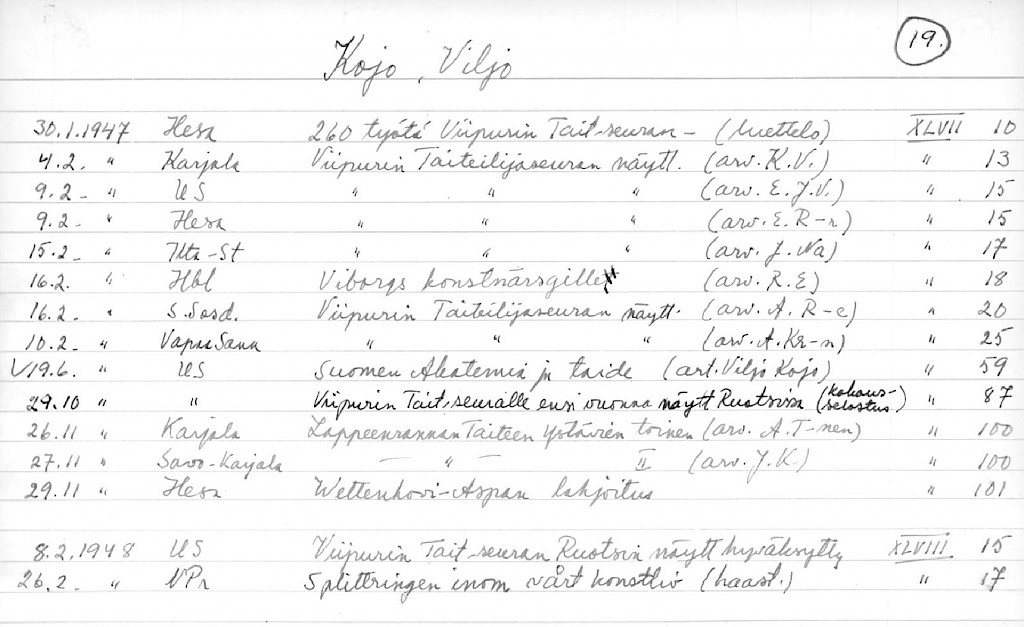 19.
Kojo, Viljo
30.1.1947 Hesa 260 työtä Viipurin Tait-seuran - (luettelo) XLVII 10
4.2. " Karjala Viipurin Taiteilijaseuran näytt. (arv. K.V.) " 13
9.2- " US " " " (arv. E.J.V.) " 15
9.2- " Hesa " " " (arv. E.R-n) " 15
15.2- " Ilta-St " " " (arv. J. Na) " 17
16.2. " Hbl Viborgs konstnärsgille (arv. R.E) " 18
16.2. " S.Sosd. Viipurin Taiteilijaseuran näytt. (arv. A. R-e) " 20
10.2. " Vapaa Sana " " " (arv. A. Kr-n) " 25
V19.6. " US Suomen Akatemia ja taide (art. Viljo Kojo) " 59
29.10 " " Viipurin Tait-seuralle ensi vuonna näytt Ruotsissa (kokous-selostus.) " 87
26.11 " Karjala Lappeenrannan Taiteen Ystävien toinen (arv. A.T-nen) " 100
27.11 " Savo-Karjala — " — II (arv. J.K.) " 100
29.11 " Hesa Wettenhovi-Aspan lahjoitus " 101
8.2.1948 US Viipurin Tait-seuran Ruotsin näytt hyväksytty XLVIII 15
26.2. " NPr Splittringen inom vårt konstliv (haast.) " 17